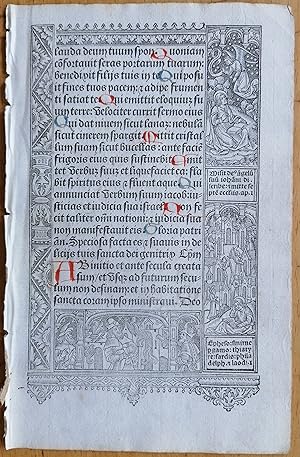 lauda deum tuum syon. Quoniam
cõfortauit seras portarum tuarum:
benedixit filijs tuis in te. Qui posu
it fines tuos pacem: z adipe frumen
ti satiat te. Qui emittit eloquium su
um terre: velociter currit sermo eius
Qui dat niuem sicut lanã: nebulã
sicut cinerem spargit. Mittit cristal
lum suam sicut bucellas: ante facie
frigoris eius quis sustinebit. Emit
tet verbum suum et liquefaciet ea: fla
bit spiritus eius z fluent aque. Qui
annunciat verbum suum iacob: iu
sticias et iudicia sua israel. Non fe
cit taliter omni nationi: z iudicia sua
non manifestauit eis. Gloria patri
an. Speciosa facta es z suauis in de
licijs tuis sancta dei genitrix. Cpm
Ab initio et ante secula creata
sum/ et vsqz ad futurum secu
lum non desinam: et in habitatione
sancta coram ipso ministraui. Deo
Misit de? ãgelũ
suũ iohãni di
cens: mitte se
ptẽ ecclesijs. ap. i
Epheso: smirne
pgamo: thiaty
re: sardis: phila
delph. z laodi.